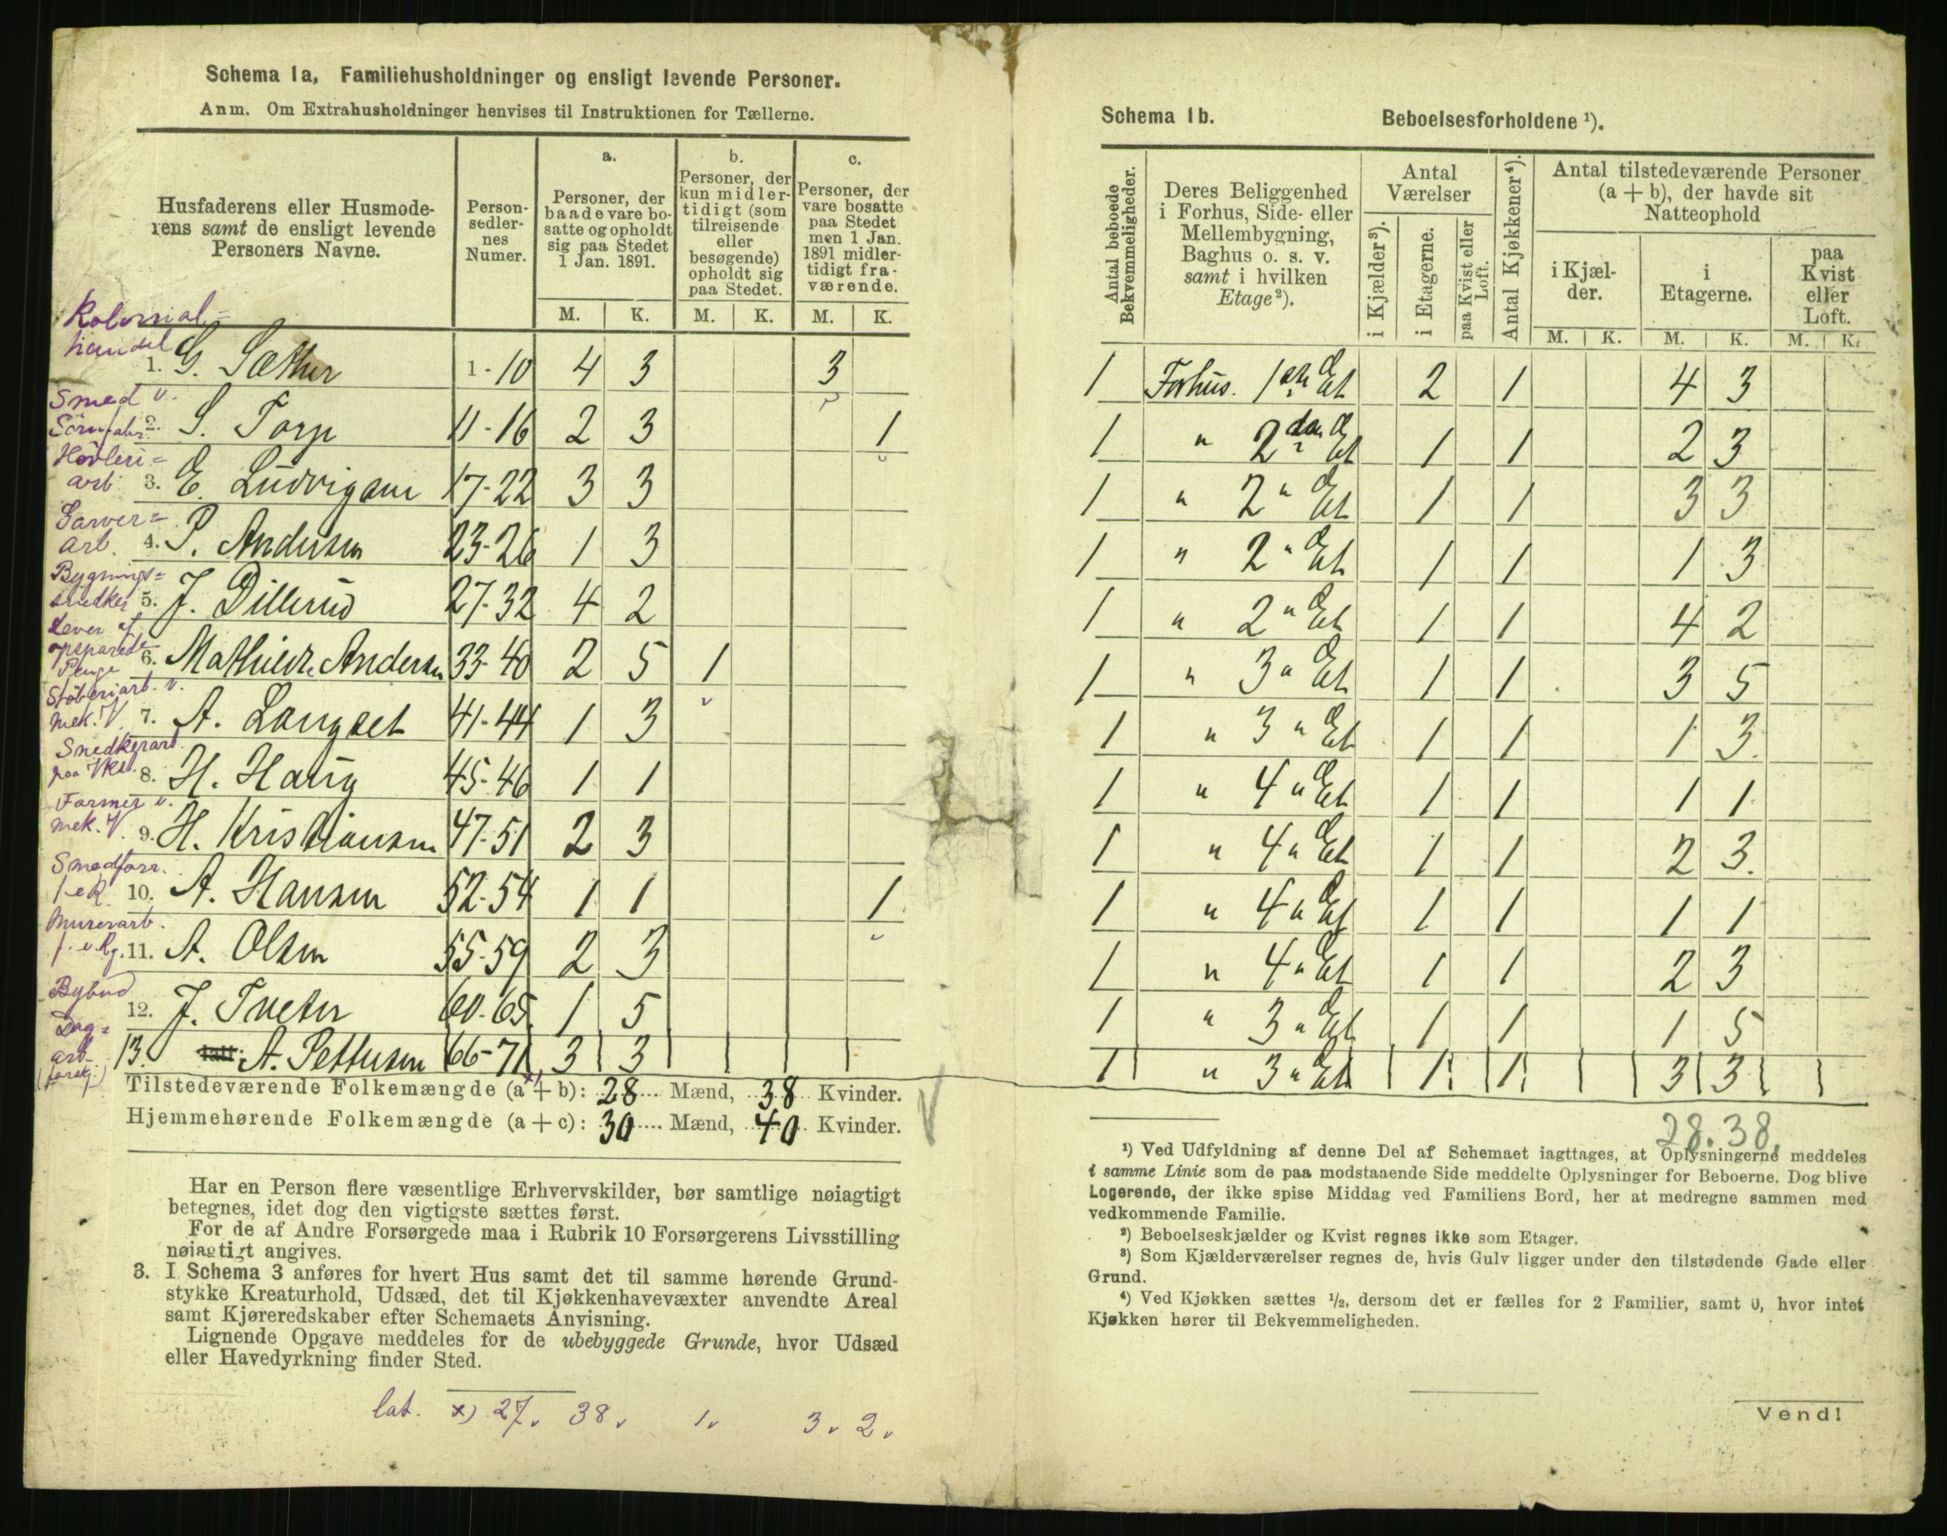 Schema 1a, Familiehusholdninger og ensligt levende Personer.
Anm. Om Extrahusholdninger henvises til Instruktionen for Tællerne.
Husfaderens eller Husmoderens samt de ensligt levende Personers Navne.
Personsedlernes Numer.
a.
Personer, der baade vare bosatte og opholdt sig paa Stedet 1 Jan. 1891.
b.
Personer, der kun midlertidigt (som tilreisende eller besøgende) opholdt sig paa Stedet.
c.
Personer, der vare bosatte paa Stedet men 1 Jan. 1891 midlertidigt fraværende.
M. K. M. K. M. K.
Kolonial=
handel
1. G. Sæther 1-10 4 3 3
Smed v.
2. S. Torp 11-16 2 3 1
Høvleri=
arb.
3. E. Ludvigsen 17-22 3 3
Garver=
arb.
4. P. Andersen 23-26 1 3
Bygnings=
snedker
5. J. Dillerud 27-32 4 2
Lever af
opsparede
Penge
6. Mathilde Andersen 33-40 2 5 1
Støberiarb. v.
mek. V.
7. A. Langset 41-44 1 3
Snedkerarb.
paa Vkst.
8. H. Haug 45-46 1 1
Former v.
mek. V.
9. H. Kristiansen 47-51 2 3
Smedforr.
10. A. Hansen 52-54 1 1 1
Murerarb.
11. A. Olsen 55-59 2 3
Bybud
12. J. Tveter 60-65 1 5
Dag=
arb.
13. A. Pettersen 66-71 3 3
Tilstedeværende Folkemængde (a x) + b): 28 Mænd, 38 Kvinder.
Hjemmehørende Folkemængde (a + c): 30 Mænd, 40 Kvinder.
Har en Person flere væsentlige Erhvervskilder, bør samtlige nøiagtigt
betegnes, idet dog den vigtigste sættes først.
For de af Andre Forsørgede maa i Rubrik 10 Forsørgerens Livsstilling
nøiagtigt angives.
3. I Schema 3 anføres for hvert Hus samt det til samme hørende Grund-
stykke Kreaturhold, Udsæd, det til Kjøkkenhavevæxter anvendte Areal
samt Kjøreredskaber efter Schemaets Anvisning.
Lignende Opgave meddeles for de ubebyggede Grunde, hvor Udsæd
eller Havedyrkning finder Sted.
lat. x) 27. 38. 1. 3. 2.
Schema 1b. Beboelsesforholdene ¹).
Antal beboede Bekvemmeligheder.
Deres Beliggenhed i Forhus, Side- eller Mellembygning, Baghus o. s. v. samt i hvilken Etage ²).
Antal Værelser
i Kjælder ³).
i Etagerne.
paa Kvist eller Loft.
Antal Kjøkkener ⁴).
Antal tilstedeværende Personer (a + b), der havde sit Natteophold
i Kjælder.
i Etagerne.
paa Kvist eller Loft.
M. K. M. K. M. K.
1 Forhus. 1ste Et 2 1 4 3
1 " 2den Et 1 1 2 3
1 " 2 " Et 1 1 3 3
1 " 2 " Et 1 1 1 3
1 " 2 " Et 1 1 4 2
1 " 3 " Et 1 1 3 5
1 " 3 " Et 1 1 1 3
1 " 4 " Et 1 1 1 1
1 " 4 " Et 1 1 2 3
1 " 4 " Et 1 1 1 1
1 " 4 " Et 1 1 2 3
1 " 3 " Et 1 1 1 5
1 " 3 " Et 1 1 3 3
28. 38.
¹) Ved Udfyldning af denne Del af Schemaet iagttages, at Oplysningerne meddeles
i samme Linie som de paa modstaaende Side meddelte Oplysninger for Beboerne. Dog blive
Logerende, der ikke spise Middag ved Familiens Bord, her at medregne sammen med
vedkommende Familie.
²) Beboelseskjælder og Kvist regnes ikke som Etager.
³) Som Kjælderværelser regnes de, hvis Gulv ligger under den tilstødende Gade eller
Grund.
⁴) Ved Kjøkken sættes ½, dersom det er fælles for 2 Familier, samt 0, hvor intet
Kjøkken hører til Bekvemmeligheden.
Vend!